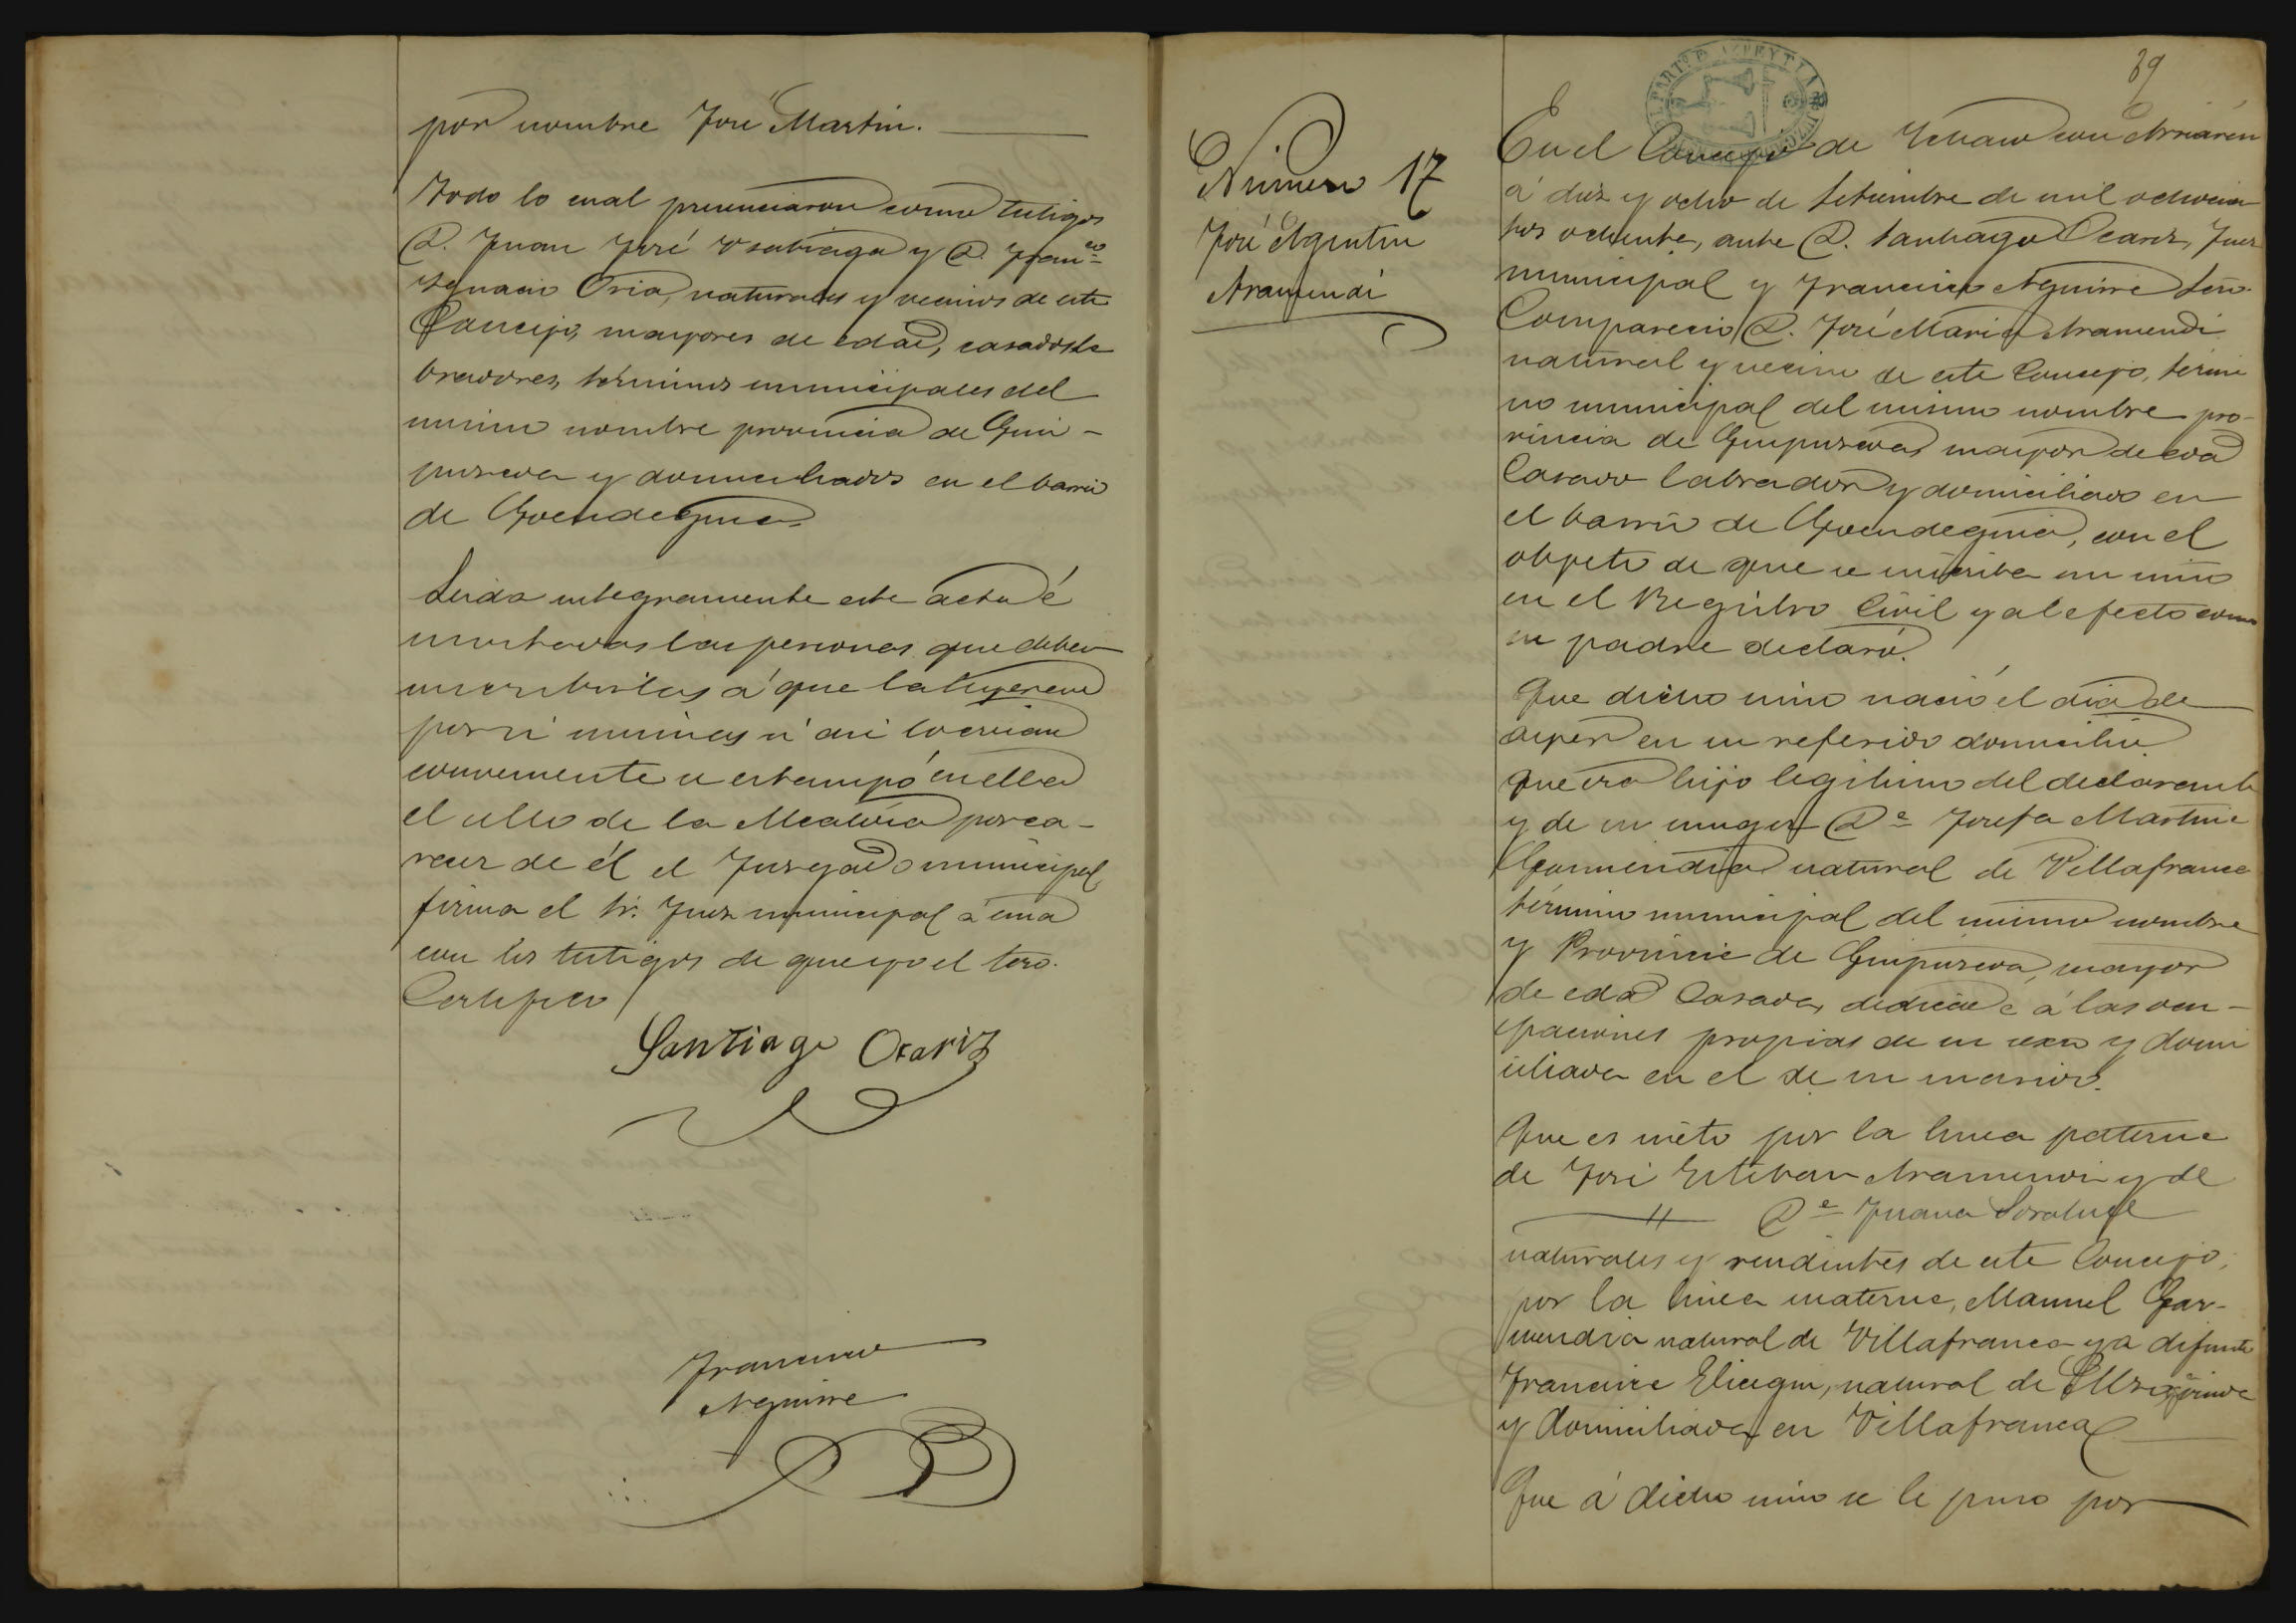 por nombre José Martin.
Todo lo cual presenciaron como testigos
D. Juan José Usabiaga y D. Franco
Ygnacio Oria, naturales y vecinos de este
Concejo, mayores de edad, casados la
bradores, términos municipales del
mismo nombre provincia de Gui-
puzcoa y domiciliados en el barrio
de Goendeguia
Leida integramente este acta é
invitadas las personas que deben
suscribirlas á que la leyeren
por si mismas si asi lo creian
conveniente se estampó en ella
el sello de la Alcaldia por ca-
recer de él el Juzgado municipal,
firma el Sr. Juez municipal á una
con los testigos de que yo el Srio.
Certifico
Santiago Ocariz
Francisco
Aguirre
39
PARTº AZPEYTIA
Número 17
José Agustin
Aramendi
En el Concejo de Ychaso con Arriarán
á diez y ocho de Setiembre de mil ochocien
tos ochenta, ante D. Santiago Ocariz, Juez
municipal y Francisco Aguirre Srio.
Compareció D. José Maria Aramendi
natural y vecino de este Concejo, térmi
no municipal del mismo nombre pro-
vincia de Guipuzcoa, mayor de eda
Casado labrador y domiciliado en
el barrio de Goendeguia, con el
objeto de que se inscriba un niño
en el Registro Civil y al efecto como
su padre declaró.
Que dicho niño nació el dia de
ayer en su referido domicilio
que era hijo legitimo del declarante
y de su muger Da Josefa Martina
Garmendia natural de Villafranca
término municipal del mismo nombre
y Provincia de Guipúzcoa, mayor
de edad Casada, dedicada á las ocu-
paciones propias de su sexo y domi
ciliada en el de su marido.
Que es nieto por la linea paterna
de José Esteban Aramendi y de
Da Juana Soraluce
naturales y residentes de este Concejo,
por la linea materna, Manuel Gar-
mendia natural de Villafranca ya difunto
Francisca Elicegui, natural de
y domiciliada en Villafranca
Que á dicho niño se le puso por